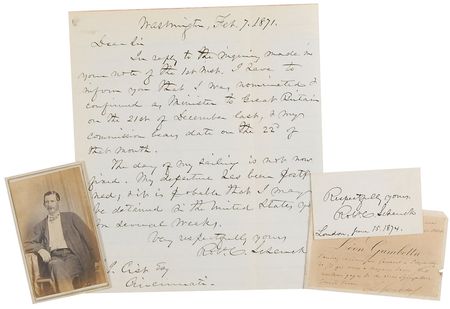 Washington, Feb. 7. 1871.
Dear Sir
In reply to the inquiry made in
your note of the 1st inst. I have to
inform you that I was nominated &
confirmed as Minister to Great Britain
on the 21st of December last, & my
commission bears date on the 22d of
that month.
The day of my sailing is not now
fixed. My departure has been postponed,
& it is probable that I may
be detained in the United States
several weeks.
Very respectfully yours
Robt. C. Schenck
Cist Esq
Cincinnati.
Respectfully yours,
Robt. C. Schenck
London, June 15. 1874.
Léon Gambetta